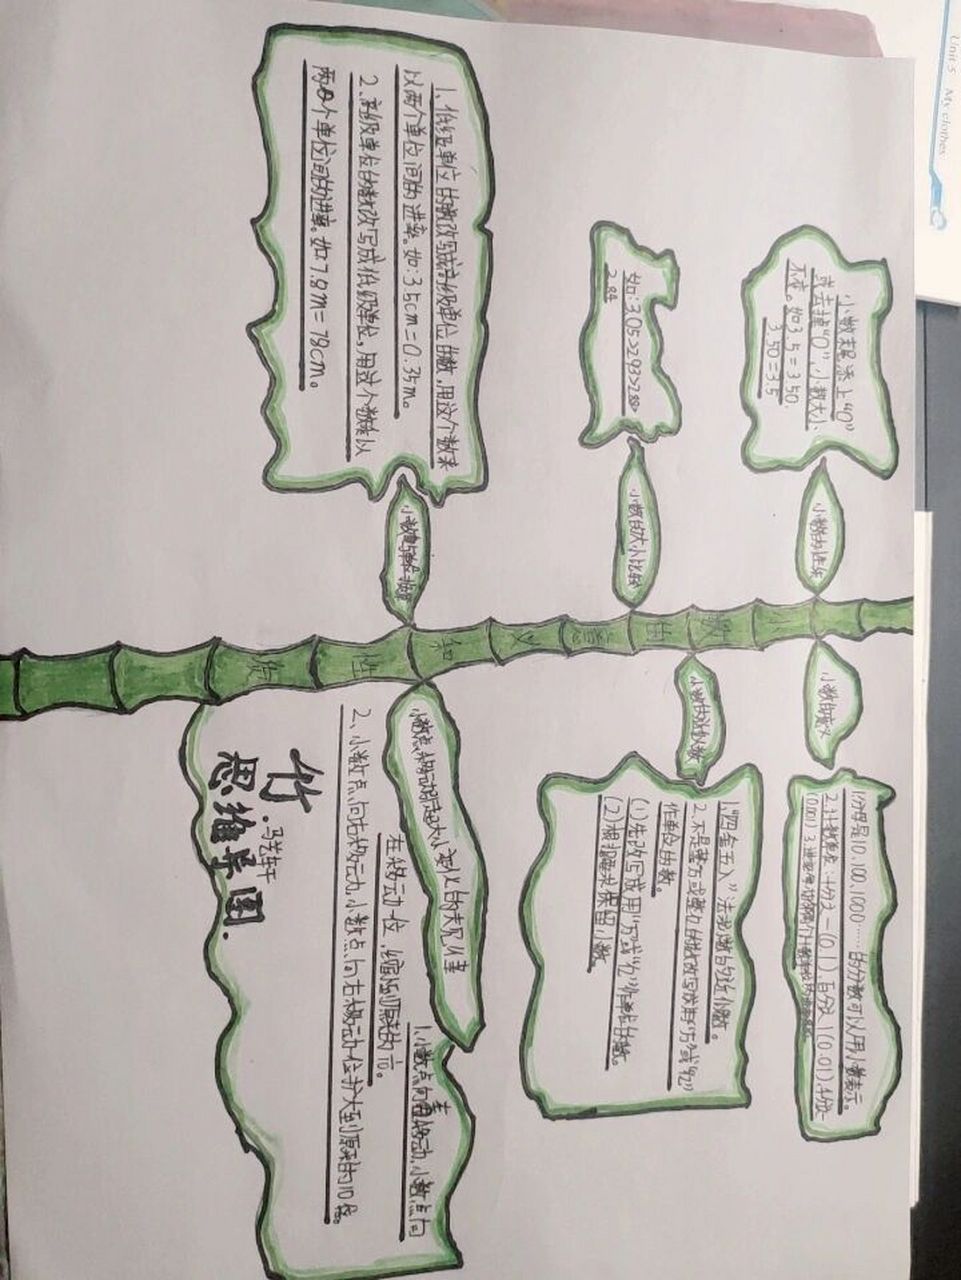 Unit 5 My clothes
小数的意义和性质
小数的性质
小数末尾添上“0”
或去掉“0”,小数大小
不变。如3.5=3.50.
3.50=3.5
小数的意义
1.分母是10、100、1000……的分数可以用小数表示。
2.计数单位:十分之一(0.1)、百分之1(0.01)、千分之一
(0.001)
小数的大小比较
如:3.05>2.93>2.88>
2.84
小数的近似数
1.“四舍五入”法求小数的近似数。
2.不是整万或整亿的数改写成用“万”或“亿”
作单位的数。
(1)先改写成用“万”或“亿”作单位的数。
(2)根据要求保留小数
小数与单位换算
1、低级单位的数改写成高级单位的数,用这个数来
以两个单位间的进率。如:35cm=0.35m。
2.高级单位的数改写成低级单位,用这个数乘以
两个单位间的进率。如7.8m=78cm。
小数点移动引起大小变化的规律
1、小数点向左移动,小数点向
左移动一位,缩小到原来的
2、小数点向右移动,小数点向右移动一位扩大到原来的10倍。
竹
思维导图.